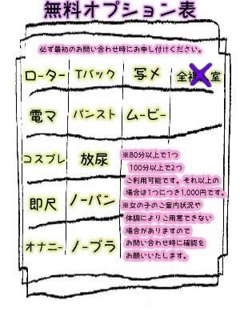 無料オプション表
必ず最初のお問い合わせ時にお申し付けください。
ローター Tバック 写メ 全 室
電マ パンスト ムービー
コスプレ 放尿
即尺 ノーパン
オナニー ノーブラ
※80分以上で1つ
100分以上で2つ
ご利用可能です。それ以上の
場合は1つにつき1,000円です。
※女の子のご案内状況や
体調によりご用意できない
場合がありますので
お問い合わせ時に確認を
お願いいたします。